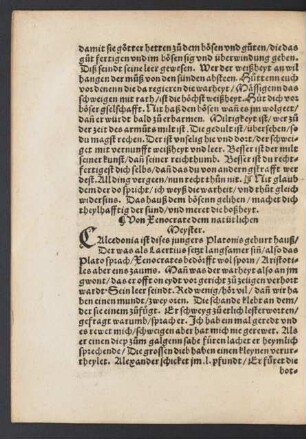 damit sie götter hetten zů dem bösen vnd gůten/ die das
gůt fertigen vnd im bösen sig vnd überwindung geben.
Diß seindt seine leer gewesen. Wer der weißheyt an wil
hangen der můß von den sünden absteen. Hütten euch
vor denenn die da regieren die warheyt/ Mässigenn das
schweigen mit rath/ ist die höchst weißheyt. Hüt dich vor
böser gselschafft. Nit haß den bösen wañ es jm wol geet/
dañ er würdt bald zů erbarmen. Miltigkeyt ist/ wer zů
der zeit des armůts milt ist. Die gedult ist/ überseben/ so
du magst rechen. Der ist vnselig hie vnd dort/ der schwei-
get mit vernunfft weißheyt vnd leer. Besser ist der milt
seiner kunst/ dañ seiner reichthumb. Besser ist du recht-
fertigest dich selbs/ dañ das du von andern gstrafft wer
dest. All ding vergeen/ nun recht thůn nit. Nit glaub
dem der do spricht/ ich weyß die warheit/ vnd thůt gleich
widersins. Das hauß dem bösenn gelihen/ machet dich
theylhafftig der sünd/ vnd meret die boßheyt.
Von Xenocrate dem natürlichen
Meyster.
CAlcedonia ist dises jungers Platonis geburt hauß/
Der was als Laertius setzt langsamer sin̄/ also das
Plato sprach/ Xenocrates bedörfft wol sporn/ Aristoti-
les aber eins zaums. Mañ was der warheyt also an jm
gwont/ das er offt on eydt vor gericht zů zeügen verhört
wardt. Sein leer seindt. Red wenig/ hör vil/ dañ wir ha-
ben einen mund/ zwey oren. Die schande klebt an dem/
der sie einem zůfügt. Er schweyg zů etlich lesterworten/
gefragt warumb/ sprach er. Ich hab ein mal geredt vnd
es rewet mich/ schweigen aber hat mich nie gerewet. Als
er einen diep zům galgenn sahe fůren lachet er heymlich
sprechende/ Die grossen dieb haben einen kleynen verur-
theylet. Alexander schicket jm .l. pfundt/ Er fůret die
bot-